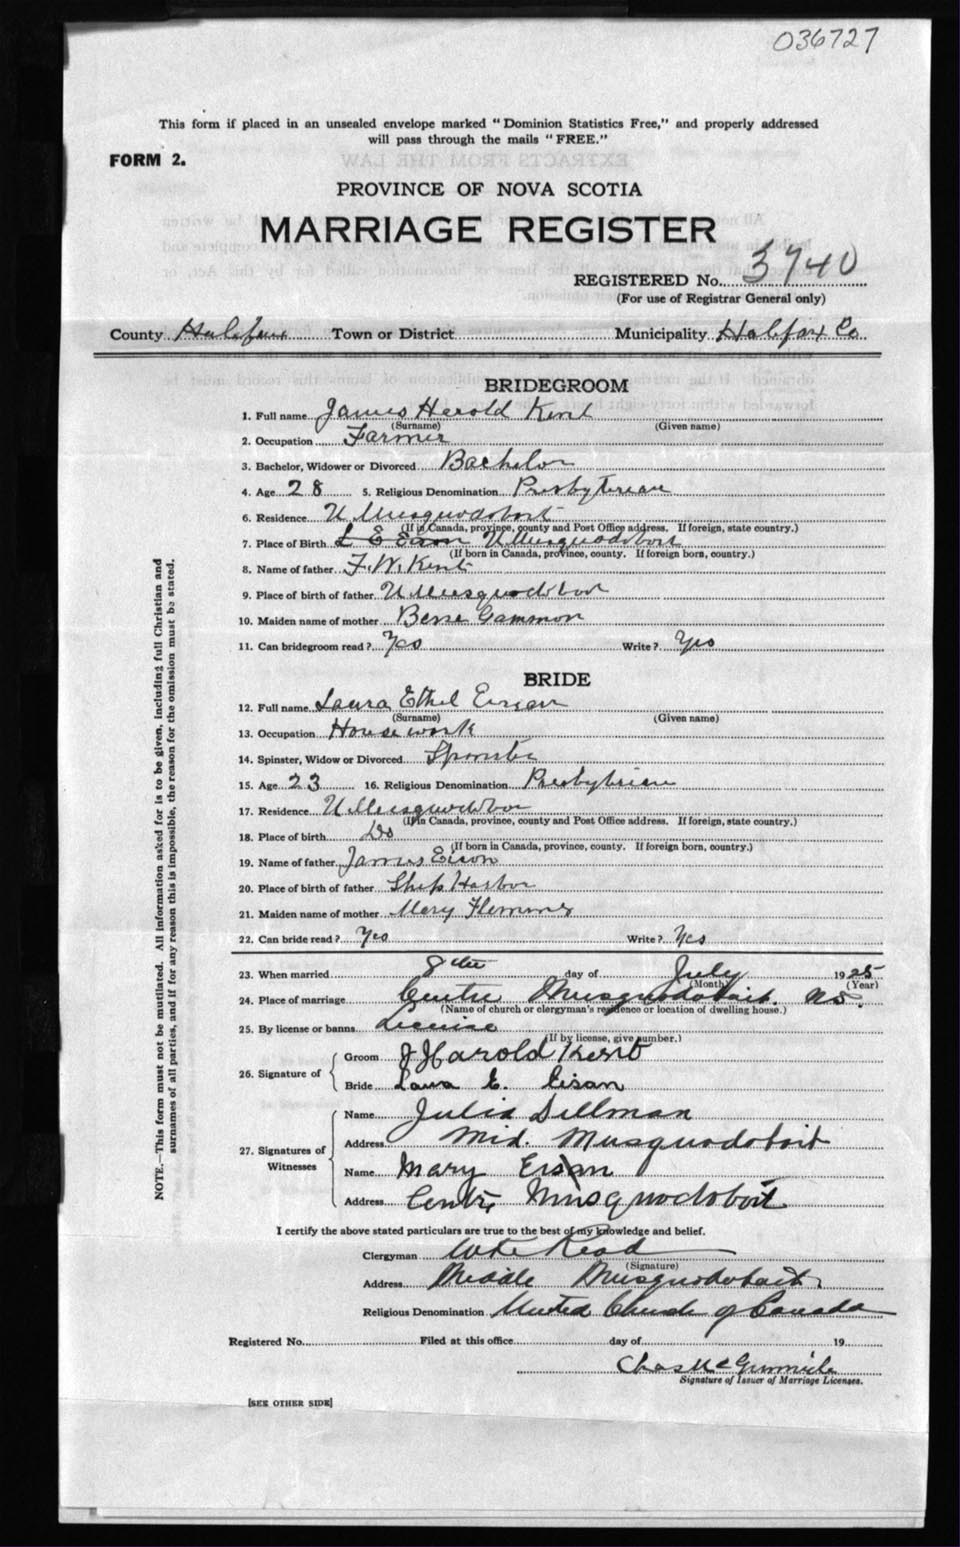 036727
This form if placed in an unsealed envelope marked "Dominion Statistics Free," and properly addressed
will pass through the mails "FREE."
FORM 2.
PROVINCE OF NOVA SCOTIA
MARRIAGE REGISTER
REGISTERED No. 3740
(For use of Registrar General only)
County Halifax Town or District Municipality Halifax Co
BRIDEGROOM
1. Full name James Harold Kent
(Surname) (Given name)
2. Occupation Farmer
3. Bachelor, Widower or Divorced Bachelor
4. Age 28 5. Religious Denomination Presbyterian
6. Residence U Musquodoboit
(If in Canada, province, county and Post Office address. If foreign, state country.)
7. Place of Birth L E Eison U Musquodoboit
(If born in Canada, province, county. If foreign born, country.)
8. Name of father F. W. Kent
9. Place of birth of father U Musquodoboit
10. Maiden name of mother Gammon
11. Can bridegroom read? Yes Write? Yes
BRIDE
12. Full name Laura Ethel Eison
(Surname) (Given name)
13. Occupation House work
14. Spinster, Widow or Divorced Spinster
15. Age 23 16. Religious Denomination Presbyterian
17. Residence U Musquodoboit
(If in Canada, province, county and Post Office address. If foreign, state country.)
18. Place of birth Do
(If born in Canada, province, county. If foreign born, country.)
19. Name of father James Eison
20. Place of birth of father Ship Harbor
21. Maiden name of mother Mary
22. Can bride read? Yes Write? Yes
23. When married 8th day of July 1925
(Month) (Year)
24. Place of marriage Centre Musquodoboit. N.S.
(Name of church or clergyman's residence or location of dwelling house.)
25. By license or banns License
(If by license, give number.)
26. Signature of
Groom J Harold Kent
Bride Laura E. Eisan
27. Signatures of Witnesses
Name Julia Dillman
Address Mid. Musquodoboit
Name Mary Eisan
Address Centre Musquodoboit
I certify the above stated particulars are true to the best of my knowledge and belief.
Clergyman Read
(Signature)
Address Middle Musquodoboit
Religious Denomination United Church of Canada
Registered No. Filed at this office day of 19
Chas
Signature of Issuer of Marriage Licenses.
[SEE OTHER SIDE]
NOTE.—This form must not be mutilated. All information asked for is to be given, including full Christian and
surnames of all parties, and if for any reason this is impossible, the reason for the omission must be stated.